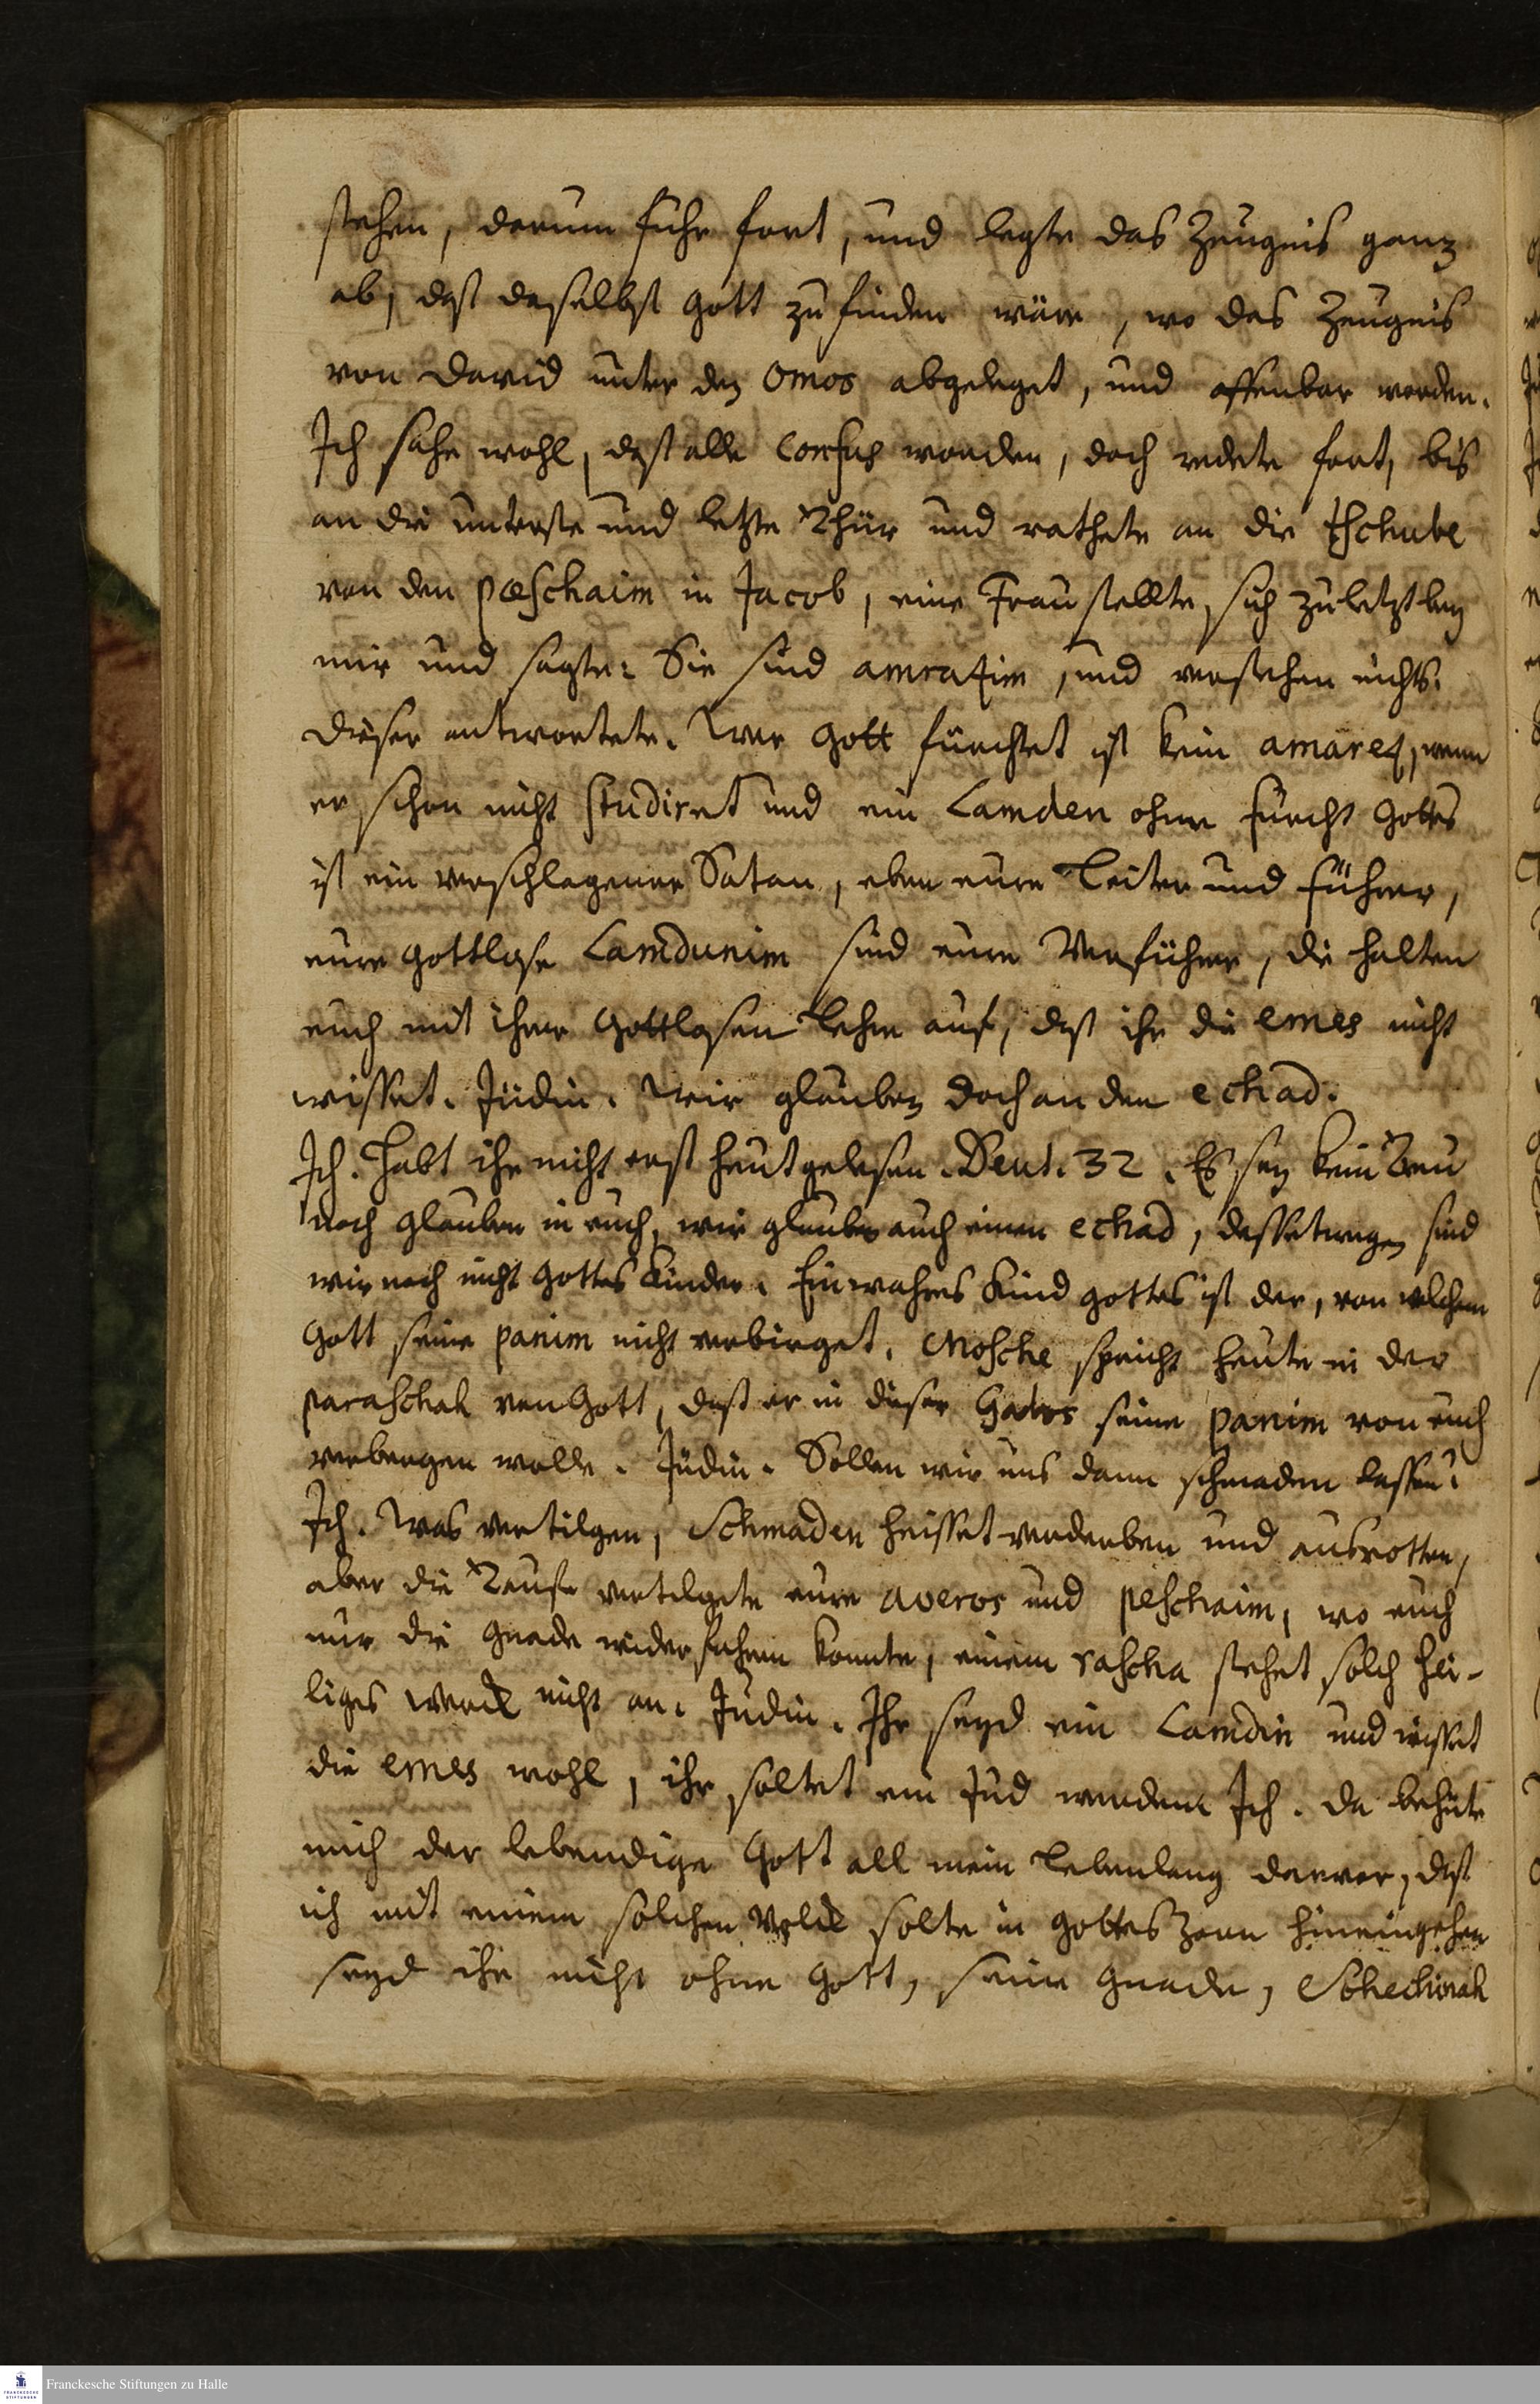 stehen, darum fuhr fort, und legte das Zeugnis ganz
ab, daß daselbst Gott zu finden wäre, wo das Zeugnis
von David unter den Omos abgeleget, und offenbar worden.
Ich sahe wohl, daß alle Confus worden, doch redete fort, bis
an die unterste und letzte Thür und rathete an die Tschube
von den pœschaim in Jacob, eine Frau stellte sich zuletzt bey
mir und sagte: Sie sind amratzim, und verstehen nichts.
Dieser antwortete. Wer Gott fürchtet ist kein amaretz, wenn
er schon nicht studiret und ein Lamden ohne Furcht Gottes
ist ein verschlagener Satan, eben eure Leiter und Führer,
eure gottlose Lamdunim sind eure Verführer, die halten
euch mit ihrer Gottlosen Lehre auf, daß ihr die emes nicht
wisset. Jüdin. Wir glauben doch an den echad.
Ich. Habt ihr nicht erst heut gelesen. Deut. 32. Es sey kein Treu
noch Glauben in euch, wir glauben auch einen echad, dessetwegen sind
wir noch nicht Gottes Kinder. Ein wahres Kind Gottes ist der, von welchem
Gott seine panim nicht verbirget. Mosche spricht heute in der
paraschah von Gott, daß er in dieser Galus seine panim von euch
verbergen wolle. Jüdin. Sollen wir uns dann schmaden lassen?
Ich. Was vertilgen, Schmaden heisset verderben und ausrotten,
aber die Taufe vertilgete eure averos und peschaim, wo euch
nur die Gnade widerfahren konnte, einem rascha stehet solch hei-
liges Werck nicht an. Jüdin. Ihr seyd ein Lamdin und wisset
die emes wohl, ihr soltet ein Jud werden. Ich. Da behüte
mich der lebendige Gott all mein Lebenlang darvor, daß
ich mit einem solchen Volck solte in Gottes Zorn hineingehen
seyd ihr nicht ohne Gott, seine Gnade, Schechinah
Franckesche Stiftungen zu Halle